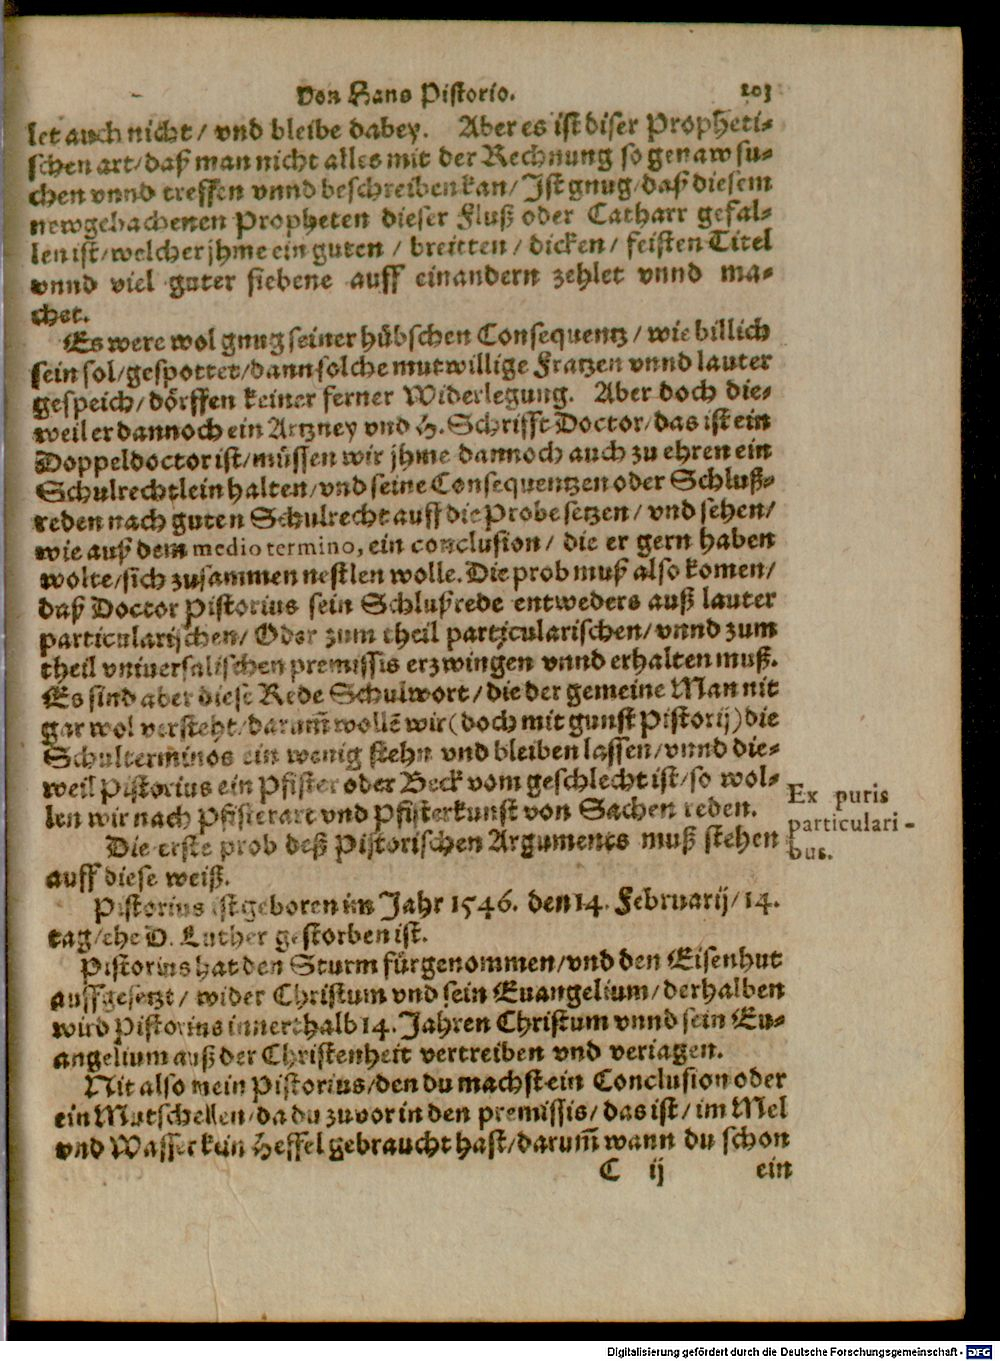 Von Hans Pistorio. 103
let auch nicht / vnd bleibe dabey. Aber es ist diser Propheti-
schen art / daß man nicht alles mit der Rechnung so genaw su-
chen vnnd treffen vnnd beschreiben kan / Ist gnug / daß diesem
newgebachenen Propheten dieser Fluß oder Catharr gefal-
len ist / welcher jhme ein guten / breitten / dicken / feisten Titel
vnnd viel guter siebene auff einandern zehlet vnnd ma-
chet.
Es were wol gnug seiner hübschen Consequentz / wie billich
sein sol / gespottet / dann solche mutwillige Fratzen vnnd lauter
gespeich / dörffen keiner ferner Widerlegung. Aber doch die-
weil er dannoch ein Artzney vnd H. Schrifft Doctor / das ist ein
Doppeldoctor ist / müssen wir jhme dannoch auch zu ehren ein
Schulrechtlein halten / vnd seine Consequentzen oder Schluß-
reden nach guten Schulrecht auff die Probe setzen / vnd sehen /
wie auß dem medio termino, ein conclusion / die er gern haben
wolte / sich zusammen nestlen wolle. Die prob muß also komen /
daß Doctor Pistorius sein Schlußrede entweders auß lauter
particularischen / Oder zum theil particularischen / vnnd zum
theil vniuersalischen premissis erzwingen vnnd erhalten muß.
Es sind aber diese Rede Schulwort / die der gemeine Man nit
gar wol versteht / darum̃ wollẽ wir (doch mit gunst Pistorij) die
Schulterminos ein wenig stehn vnd bleiben lassen / vnnd die-
weil Pistorius ein Pfister oder Beck vom geschlecht ist / so wol-
len wir nach Pfisterart vnd Pfisterkunst von Sachen reden.
Ex puris
particulari-
bus.
Die erste prob deß Pistorischen Arguments muß stehen
auff diese weiß.
Pistorius ist geboren im Jahr 1546. den 14. Februarij / 14.
tag / ehe D. Luther gestorben ist.
Pistorius hat den Sturm fürgenommen / vnd den Eisenhut
auffgesetzt / wider Christum vnd sein Euangelium / derhalben
wird Pistorius innerthalb 14. Jahren Christum vnnd sein Eu-
angelium auß der Christenheit vertreiben vnd veriagen.
Nit also mein Pistorius / den du machst ein Conclusion oder
ein Mutschellen / da du zuvor in den premissis / das ist / im Mel
vnd Wasser kein Heffel gebraucht hast / darum̃ wann du schon
C ij ein
Digitalisierung gefördert durch die Deutsche Forschungsgemeinschaft - DFG